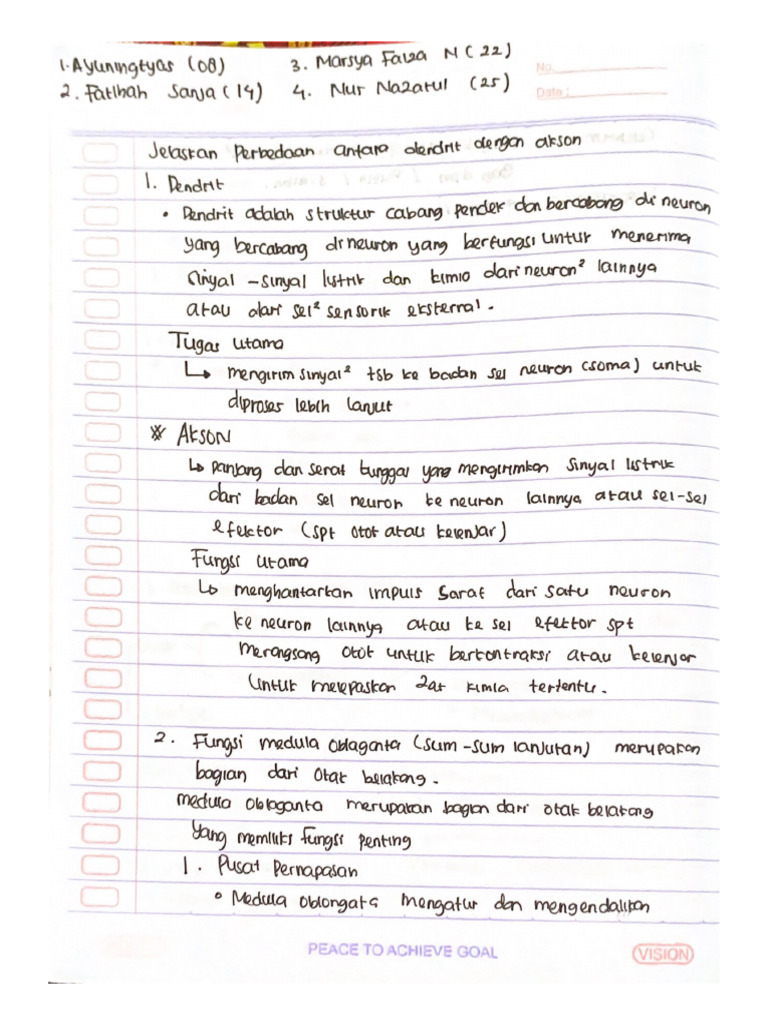 1. Ayuningtyas (08) 3. Marsya Faiza N (22)
2. Fatihah Sania (14) 4. Nur Nazatul (25)
No.
Date :
Jelaskan Perbedaan antara dendrit dengan akson
1. Dendrit
• Dendrit adalah struktur cabang pendek dan bercabang di neuron
yang bercabang di neuron yang berfungsi untuk menerima
sinyal - sinyal listrik dan kimia dari neuron² lainnya
atau dari sel² sensorik eksternal.
Tugas utama
↳ mengirim sinyal² tsb ke badan sel neuron (soma) untuk
diproses lebih lanjut
※ AKSON
↳ panjang dan serat tunggal yang mengirimkan sinyal listrik
dari badan sel neuron ke neuron lainnya atau sel-sel
efektor (spt otot atau kelenjar)
Fungsi utama
↳ menghantarkan impuls saraf dari satu neuron
ke neuron lainnya atau ke sel efektor spt
merangsang otot untuk berkontraksi atau kelenjar
untuk melepaskan zat kimia tertentu.
2. Fungsi medula oblaganta (sum-sum lanjutan) merupakan
bagian dari Otak belakang.
medula oblaganta merupakan bagian dari otak belakang
yang memiliks fungsi penting
1. Pusat Pernapasan
• Medula oblongata mengatur dan mengendalikan
PEACE TO ACHIEVE GOAL
VISION